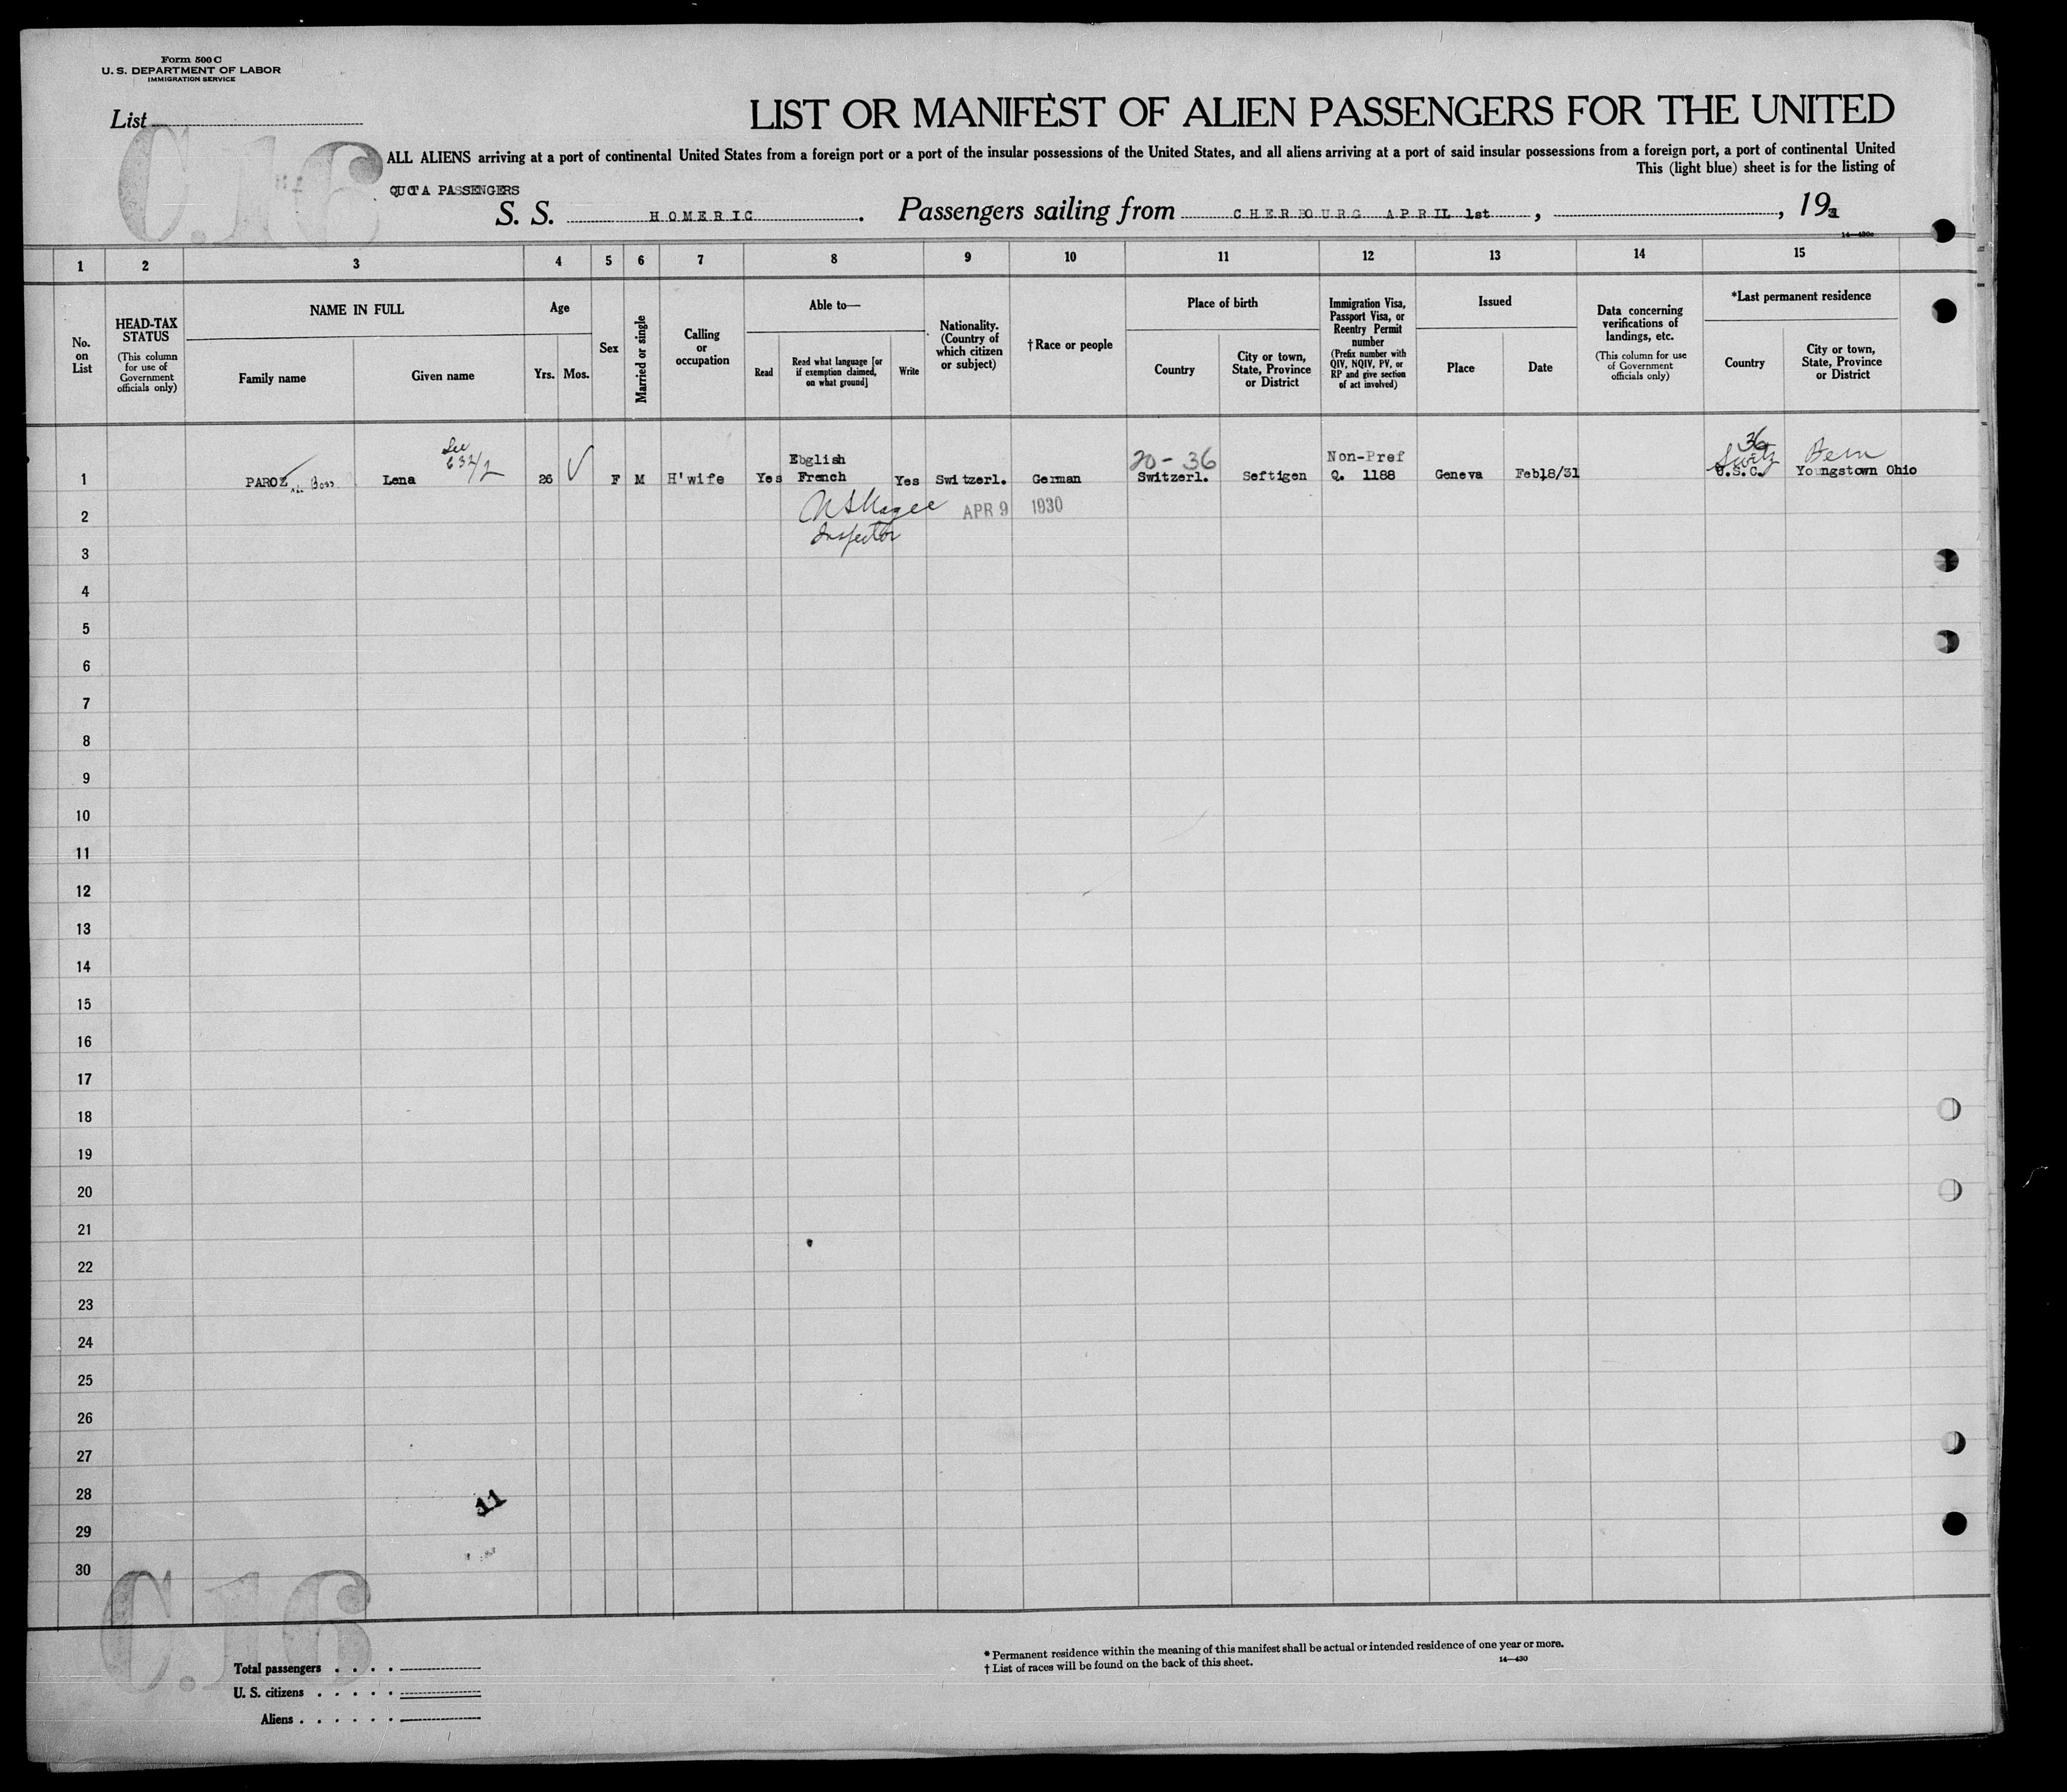 Form 500 C
U. S. DEPARTMENT OF LABOR
IMMIGRATION SERVICE
List
C.16
LIST OR MANIFEST OF ALIEN PASSENGERS FOR THE UNITED
ALL ALIENS arriving at a port of continental United States from a foreign port or a port of the insular possessions of the United States, and all aliens arriving at a port of said insular possessions from a foreign port, a port of continental United
This (light blue) sheet is for the listing of
QUOTA PASSENGERS
S. S. HOMERIC. Passengers sailing from CHERBOURG APRIL 1st, , 193
14—430c
1 2 3 4 5 6 7 8 9 10 11 12 13 14 15
No. on List
HEAD-TAX STATUS
(This column for use of Government officials only)
NAME IN FULL
Family name
Given name
Age
Yrs.
Mos.
Sex
Married or single
Calling or occupation
Able to—
Read
Read what language [or if exemption claimed, on what ground]
Write
Nationality. (Country of which citizen or subject)
†Race or people
Place of birth
Country
City or town, State, Province or District
Immigration Visa, Passport Visa, or Reentry Permit number
(Prefix number with QIV, NQIV, PV, or RP and give section of act involved)
Issued
Place
Date
Data concerning verifications of landings, etc.
(This column for use of Government officials only)
*Last permanent residence
Country
City or town, State, Province or District
See
632/2
Ebglish
20-36
Non-Pref
36
Switz
Bern
1 PAROZ Boss Lena 26 F M H'wife Yes French Yes Switzerl. German Switzerl. Seftigen Q. 1188 Geneva Feb18/31 U.S.C. Youngstown Ohio
2 APR 9 1930
Inspector
3
4
5
6
7
8
9
10
11
12
13
14
15
16
17
18
19
20
21
22
23
24
25
26
27
28
11
29
30
C.16
Total passengers
U. S. citizens
Aliens
* Permanent residence within the meaning of this manifest shall be actual or intended residence of one year or more.
† List of races will be found on the back of this sheet.
14—430